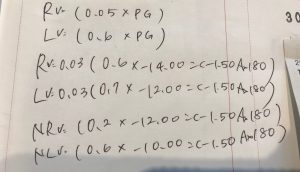 RV: (0.05 x PG)
LV: (0.6 x PG)
RV: 0.03 (0.6 x -14.00 = C-1.50 Ax180)
LV: 0.03 (0.7 x -12.00 = C-1.50 Ax180)
NRV: (0.2 x -12.00 = C-1.50 Ax180)
NLV: (0.6 x -10.00 = C-1.50 Ax180)
30